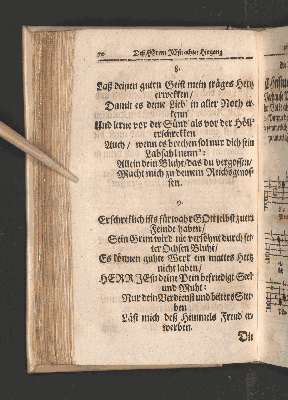 70 Deß HErrn JEsu aher Hingang
8.
Laß deinen guten Geist mein träges Hertz
erwecken/
Damit es deine Lieb' in aller Noth er-
kenn'/
Und lerne vor der Sünd' als vor der Höll'
erschrecken
Auch/ wenn es brechen sol nur dich sein
Labsahl nenn':
Allein dein Bluht/ das du vergossen/
Macht mich zu deinem Reichsgenos-
sen.
9.
Erschrecklich ists fürwahr GOtt selbst zum
Feinde haben/
Sein Grim wird nie versöhnt durch fet-
ter Ochsen Bluht/
Es können guhte Werk' ein mattes Hertz
nicht laben/
HERR JEsu deine Pein befriedigt Seel
und Muht:
Nur dein Verdienst und bitters Ster-
ben
Läst mich deß Himmels Freud er-
werben.
Die